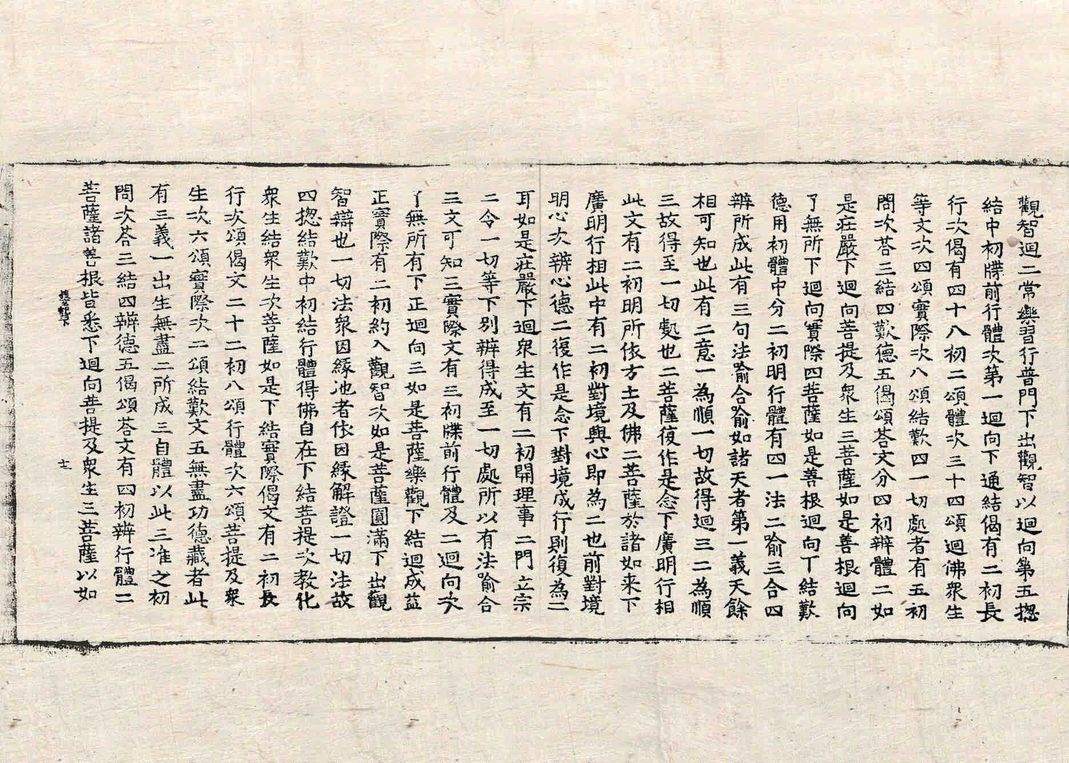 觀智迴二常樂習行普門下出觀智以迴向第五揔
結中初牒前行體次第一迴向下通結偈有二初長
行次偈有四十八初二頌體次三十四頌迴佛衆生
等文次四頌實際次八頌結歎四一切處者有五初
問次荅三結四歎德五偈頌荅文分四初辨體二如
是莊嚴下迴向菩提及衆生三菩薩如是善根迴向
了無所下迴向實際四菩薩如是善根迴向下結歎
德用初體中分二初明行體有四一法二喻三合四
辨所成此有三句法喻合喻如諸天者第一義天餘
相可知也此有二意一為順一切故得迴三二為順
三故得至一切處也二菩薩復作是念下廣明行相
此文有二初明所依方土及佛二菩薩於諸如来下
廣明行相此中有二初對境興心即為二也前對境
明心次辨心德二復作是念下對境成行則復為二
耳如是莊嚴下迴衆生文有二初開理事二門立宗
二令一切等下別辨得成至一切處所以有法喻合
三文可知三實際文有三初牒前行體及二迴向次
了無所有下正迴向三如是菩薩樂觀下結迴成益
正實際有二初約入觀智次如是菩薩圓滿下出觀
智辯也一切法衆因緣池者依因緣解證一切法故
四揔結歎中初結行體得佛自在下結菩提次教化
衆生結衆生次菩薩如是下結實際偈文有二初長
行次頌偈文二十二初八頌行體次六頌菩提及衆
生次六頌實際次二頌結歎文五無盡功德藏者此
有三義一出生無盡二所成三自體以此三准之初
問次荅三結四辨德五偈頌荅文有四初辨行體二
菩薩諸善根皆悉下迴向菩提及衆生三菩薩以如
十七